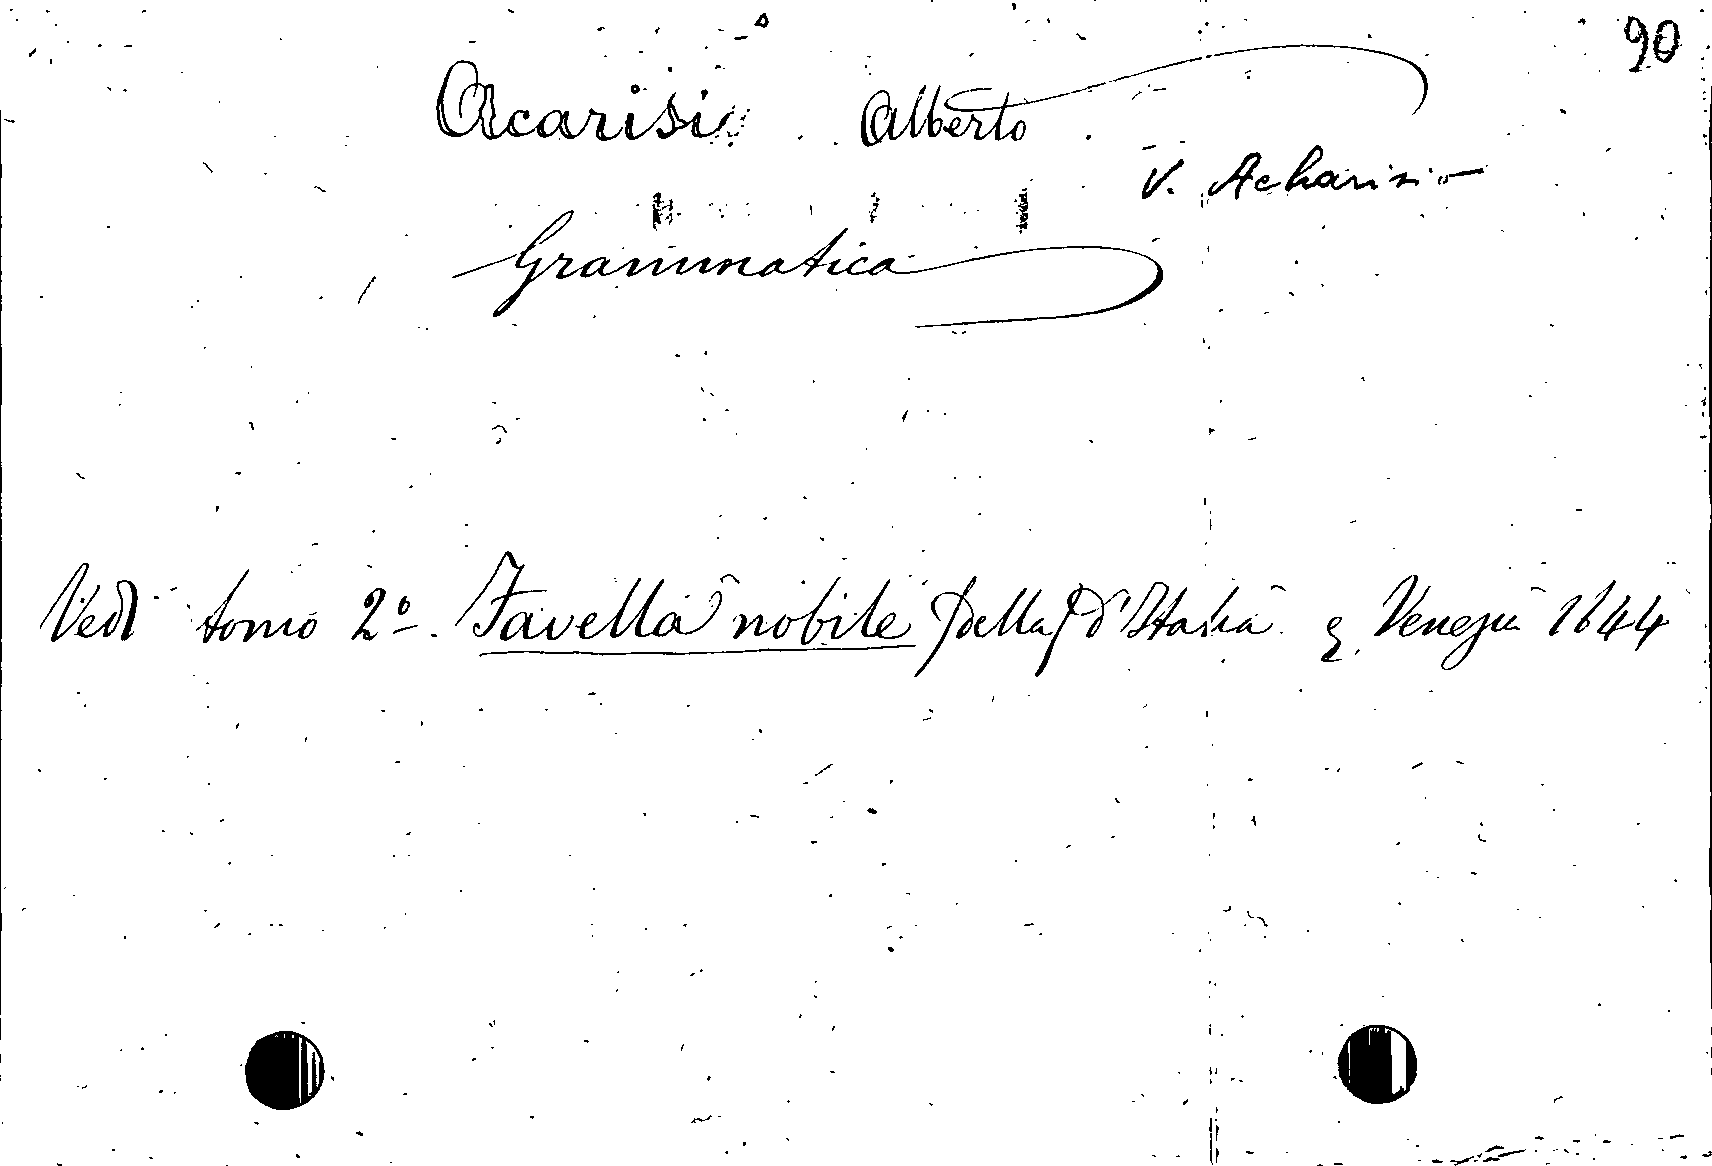 90
Acarisi Alberto
V. Acharisio
Grammatica
Vedi tomo 2º. Favella nobile della d'Italia Venezia 1644